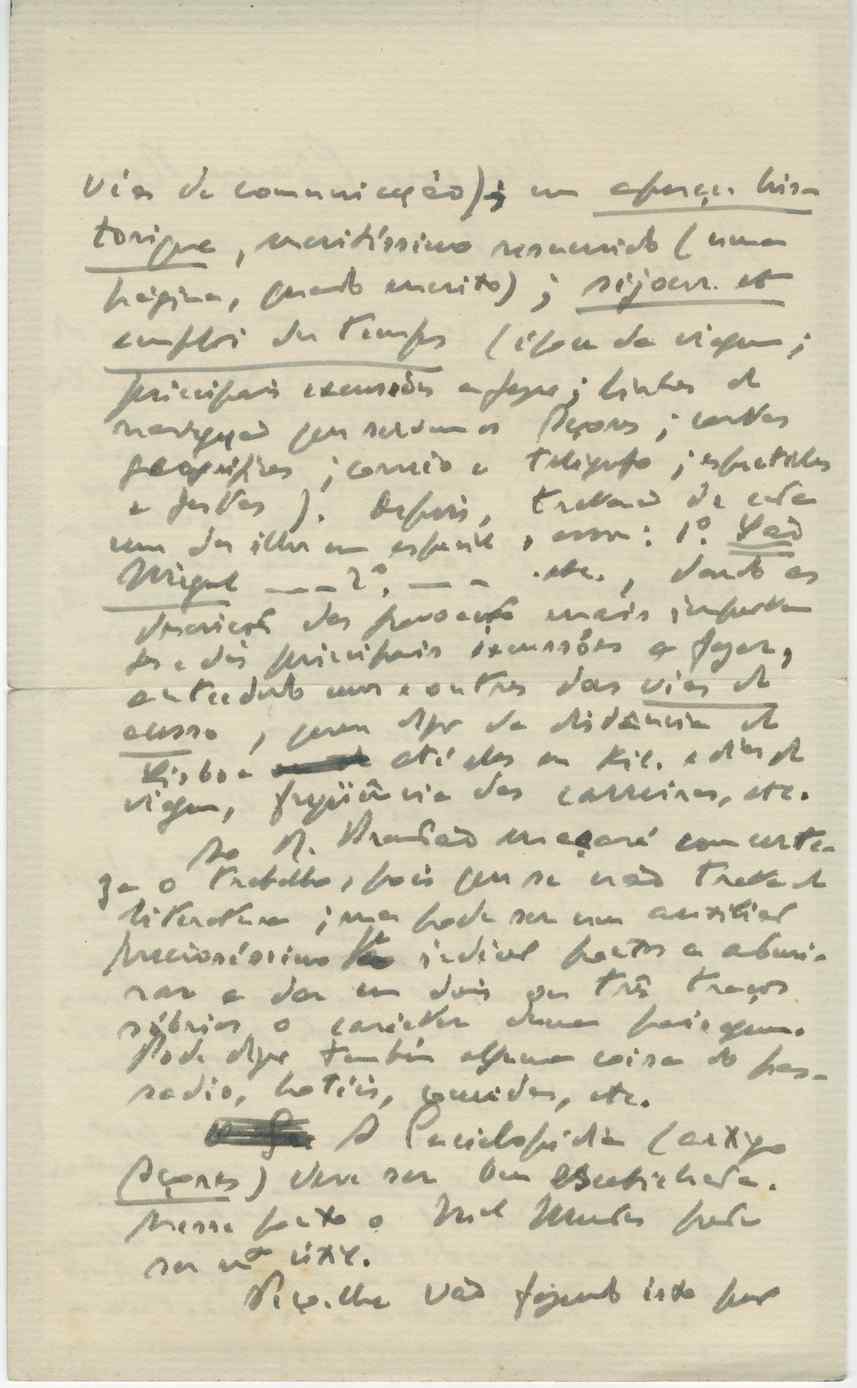 vias de comunicação); um aperçu his-
torique, muitíssimo resumido (uma
página, quando muito); séjour et
emploi du temps (época da viagem;
principais excursões a fazer; linhas de
navegação que servem os Açores; cartas
geográficas; correio e telégrafo; espectáculos
e festas). Depois, tratará de cada
uma das ilhas em especial, assim: 1º. São
Miguel ___ 2º. ___ etc., dando as
descrições das povoações mais importan
tes e das principais excursões a fazer,
antecedendo umas e outras das vias de
acesso, quer dizer da distância de
Lisboa até elas em kil. e dias de
viagem, freqüência das carreiras, etc.
Ao R. Brandão maçará com certe-
za o trabalho, pois que se não trata de
literatura; mas pode ser um auxiliar
preciosíssimo indicar pontos e a
e dar em dois ou três traços
sóbrios o carácter duma paisagem.
Pode dizer também alguma coisa do pas-
sadio, hotéis, comidas, etc.
A Enciclopédia (artigo
Açores) deve ser bem
Nesse ponto o Mendes pode
ser mto útil.
Peço-lhe vão fazendo isto por